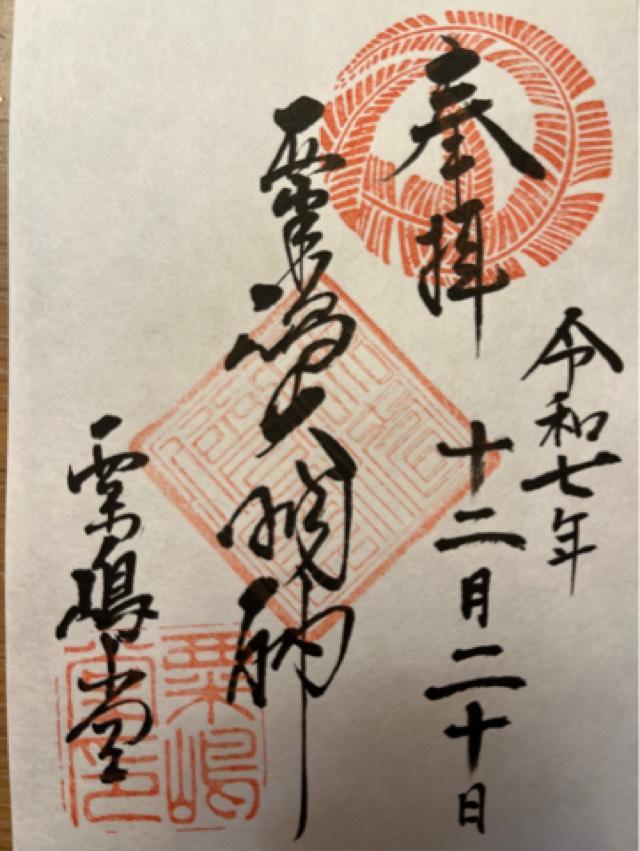 奉拝
令和七年
十二月二十日
粟嶋大明神
粟嶋堂
粟嶋
堂印